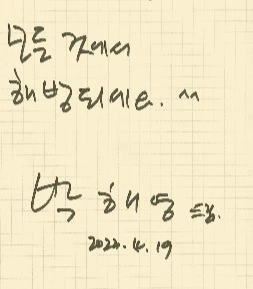 모든 것에서
해방되세요. ^^
박해영 드림.
2022. 4. 19